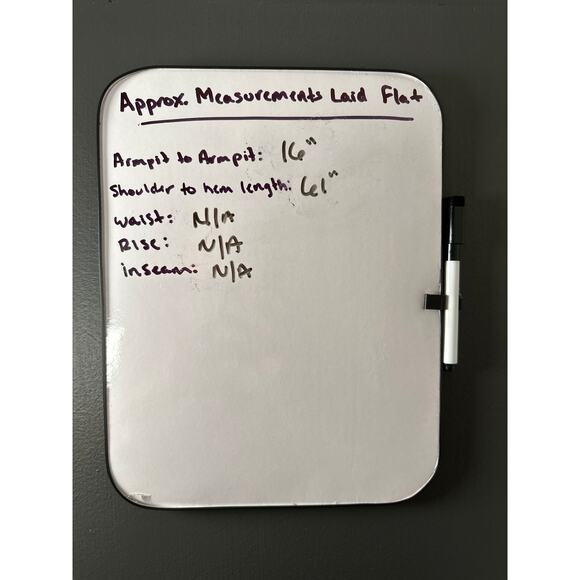 Approx. Measurements Laid Flat
Armpit to Armpit: 16"
Shoulder to hem length: 61"
Waist: N/A
Rise: N/A
inseam: N/A